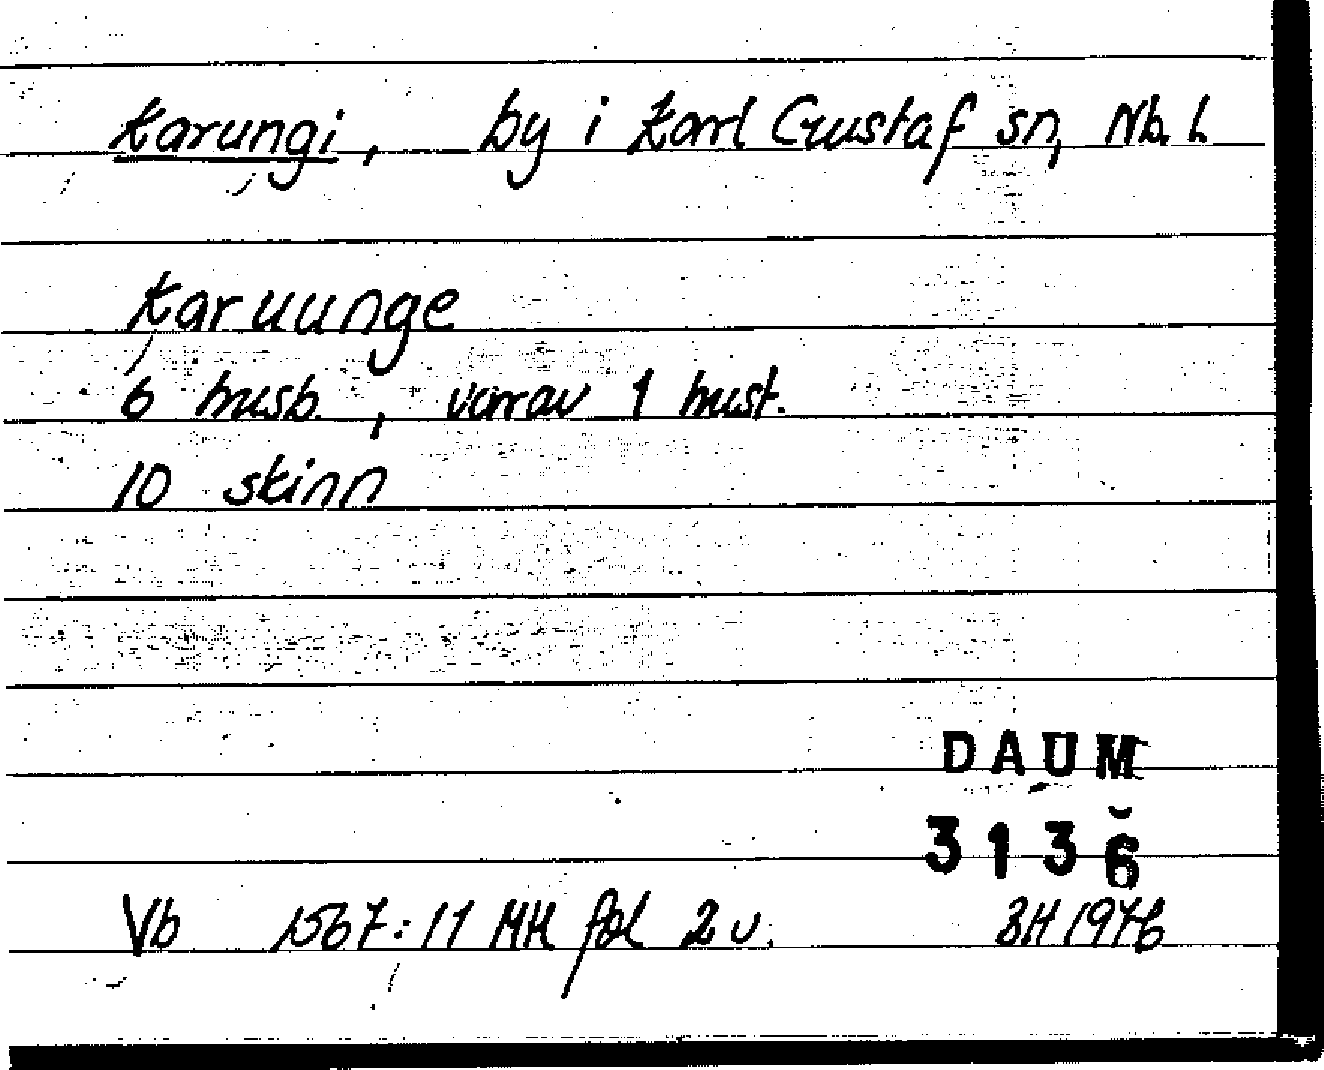 Karungi, by i Karl Gustaf sn, Nb. L
Karuunge
6 husb., varav 1 hust.
10 skinn
DAUM
3136
Vb 1567:11 MH fol 2 v. BH 1976